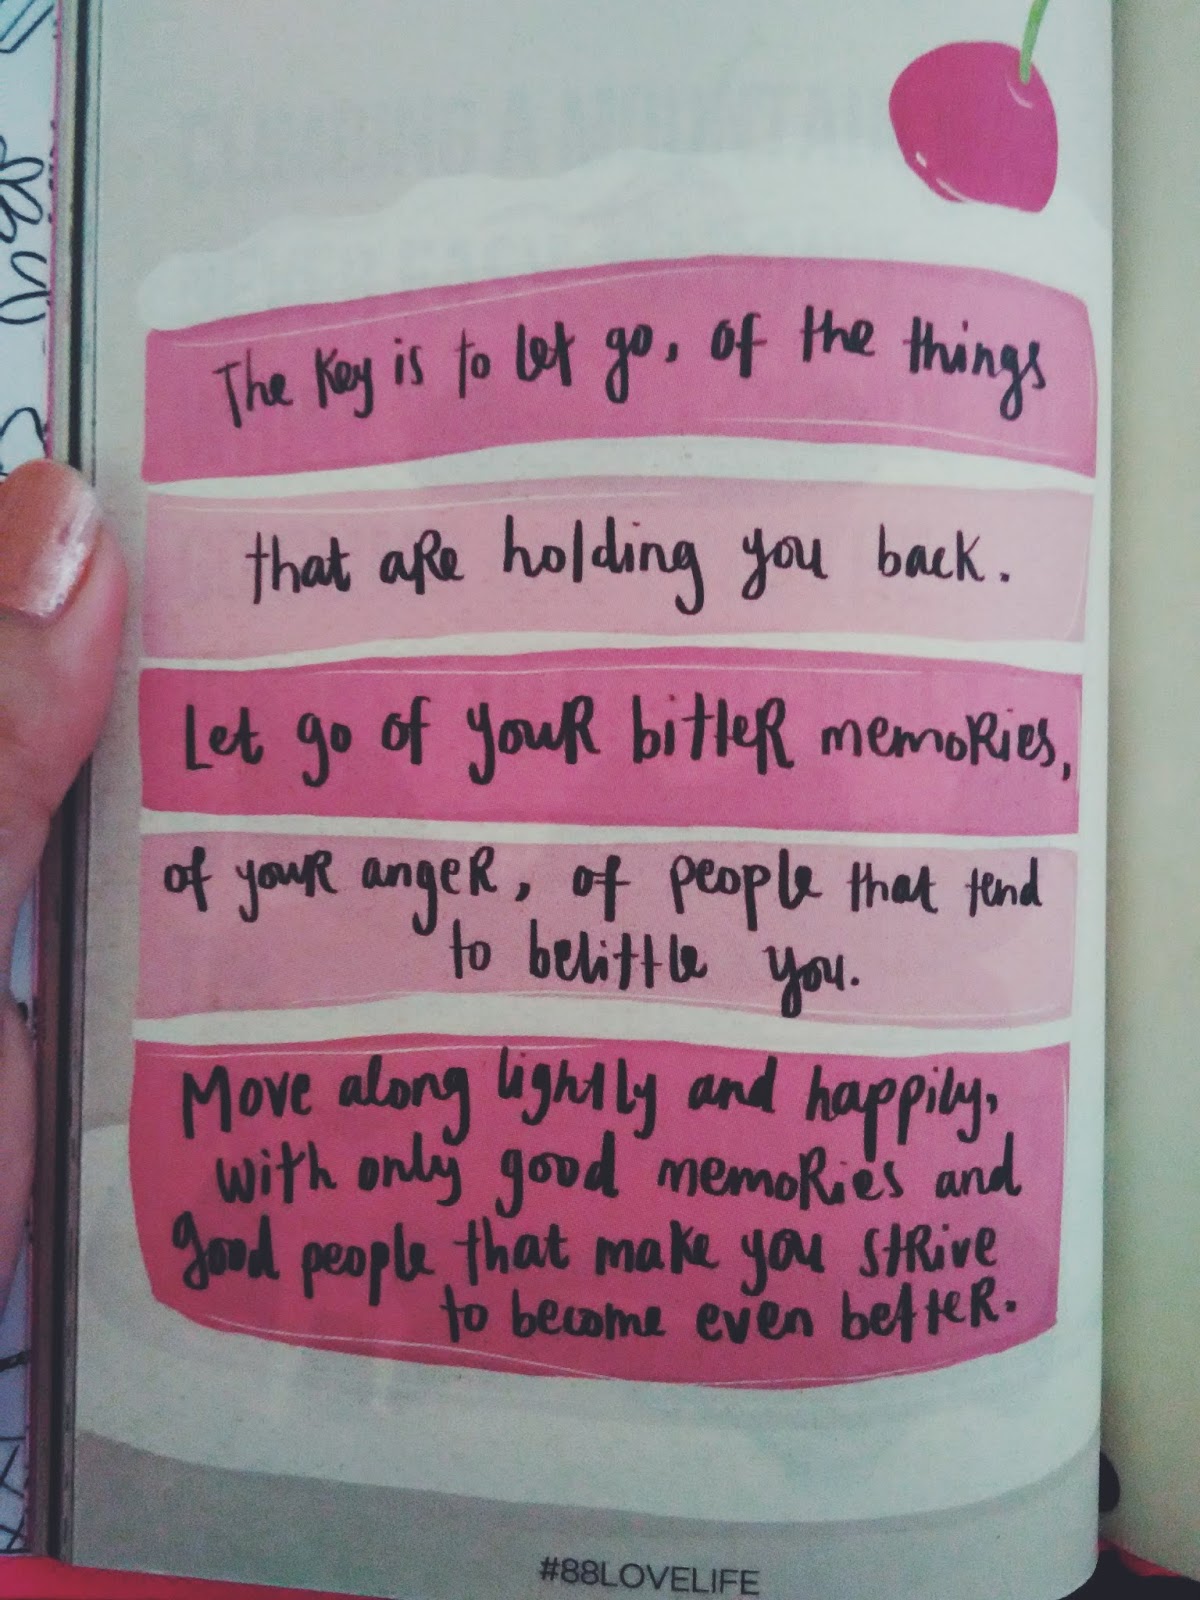 The Key is to let go, of the things
that are holding you back.
Let go of your bitter memories,
of your anger, of people that tend
to belittle you.
Move along lightly and happily,
with only good memories and
good people that make you strive
to become even better.
#88LOVELIFE